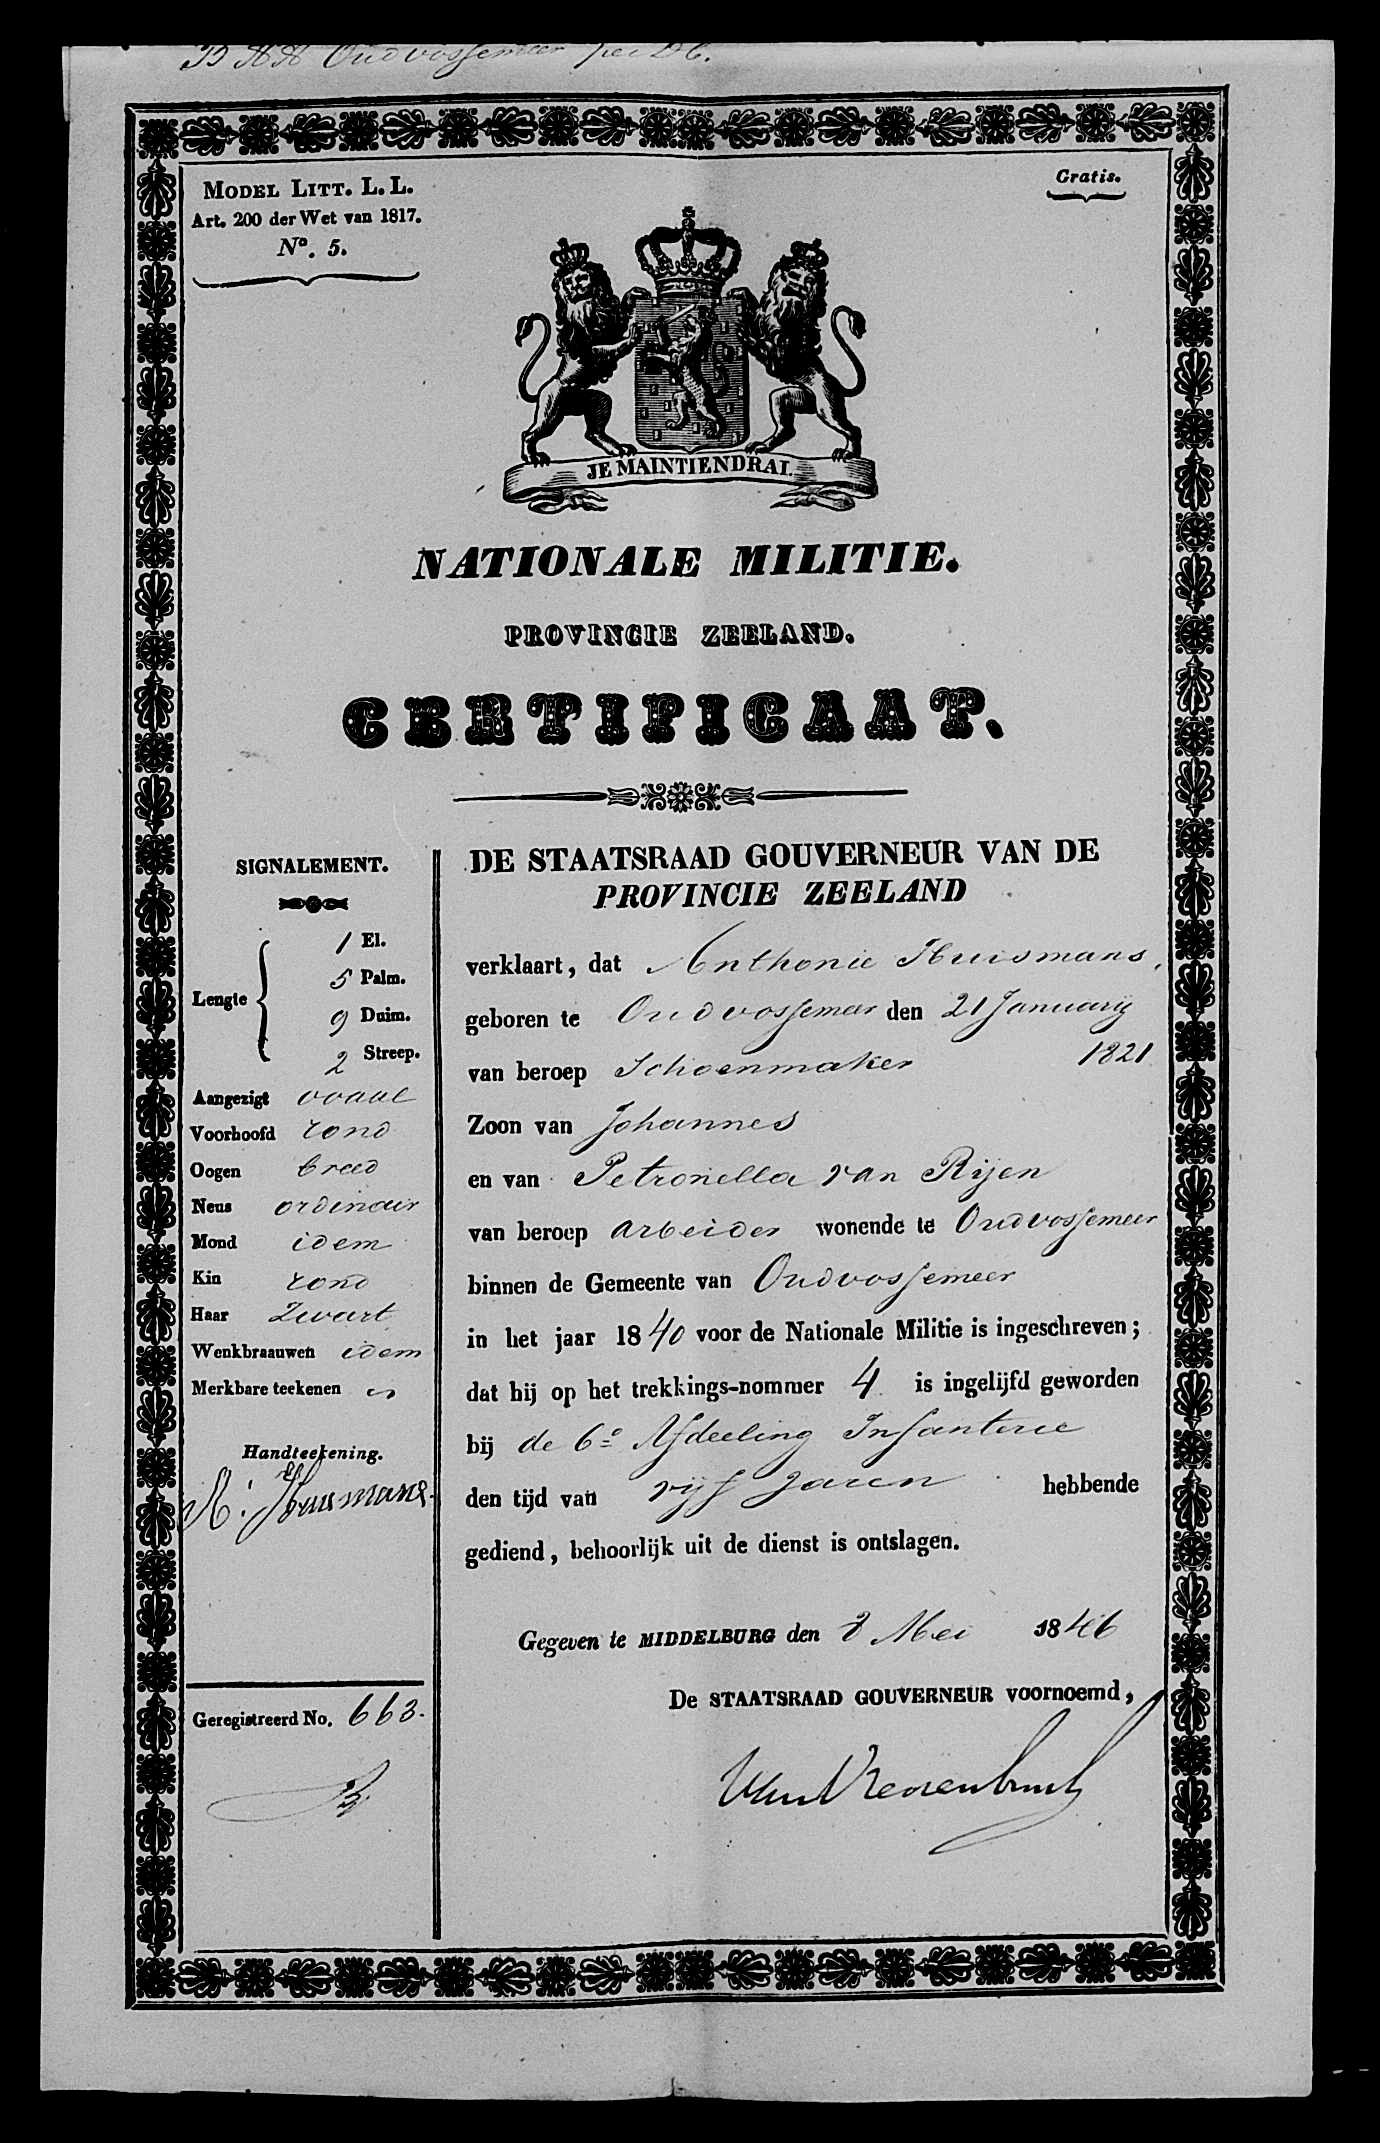 Oudvossemeer
MODEL LITT. L. L.
Art. 200 der Wet van 1817.
No. 5.
Gratis.
JE MAINTIENDRAI.
NATIONALE MILITIE.
PROVINCIE ZEELAND.
CERTIFICAAT.
SIGNALEMENT.
Lengte
1 El.
5 Palm.
9 Duim.
2 Streep.
Aangezigt ovaal
Voorhoofd rond
Oogen breed
Neus ordinair
Mond idem
Kin rond
Haar Zwart
Wenkbraauwen idem
Merkbare teekenen
Handteekening.
A: Huusmans.
Geregistreerd No. 663.
DE STAATSRAAD GOUVERNEUR VAN DE
PROVINCIE ZEELAND
verklaart, dat Anthonie Huismans,
geboren te Oudvossemeer den 21 Januarij
van beroep Schoenmaker 1821
Zoon van Johannes
en van Petronella van Rijen
van beroep arbeider wonende te Oudvossemeer
binnen de Gemeente van Oudvossemeer
in het jaar 1840 voor de Nationale Militie is ingeschreven;
dat hij op het trekkings-nommer 4 is ingelijfd geworden
bij de 6e Afdeeling Infanterie
den tijd van vijf jaren hebbende
gediend, behoorlijk uit de dienst is ontslagen.
Gegeven te MIDDELBURG den 8 Mei 1846
De STAATSRAAD GOUVERNEUR voornoemd,